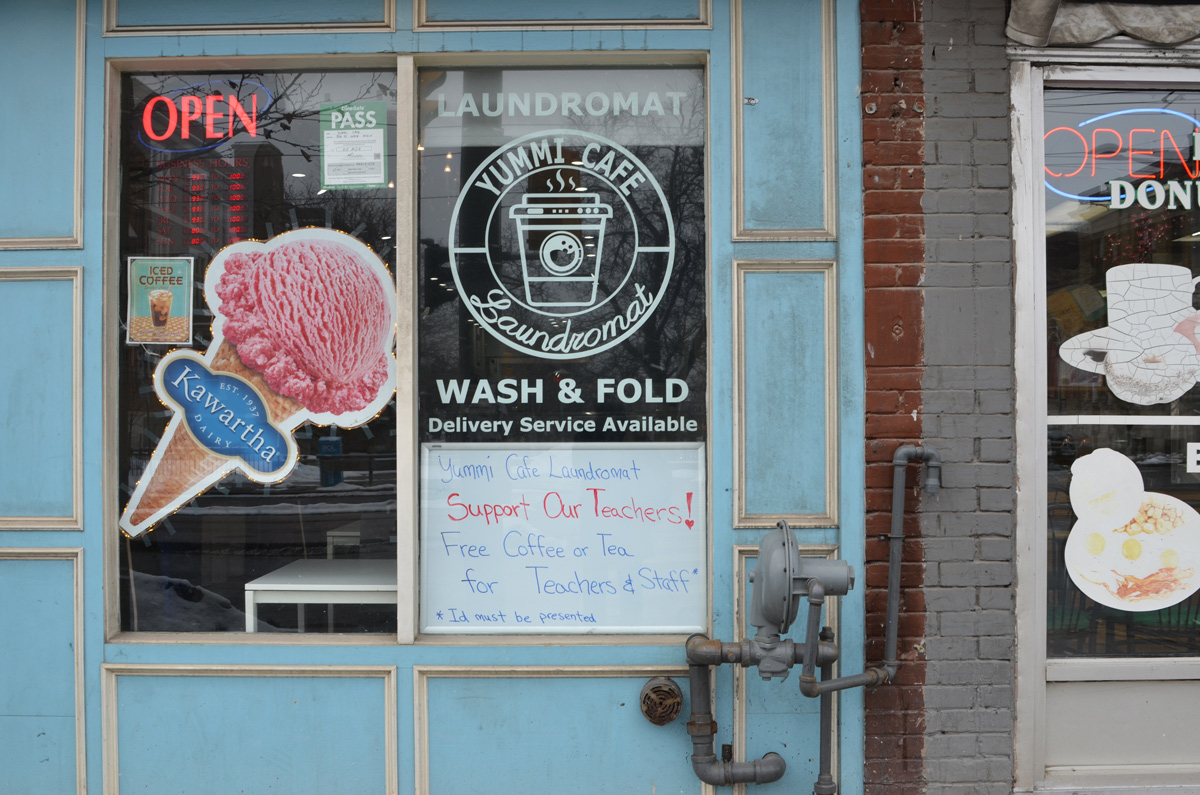 OPEN
PASS
BUSINESS HOURS
ICED
COFFEE
EST. 1937
Kawartha
DAIRY
LAUNDROMAT
YUMMI CAFE
Laundromat
WASH & FOLD
Delivery Service Available
Yummi Cafe Laundromat
Support Our Teachers!
Free Coffee or Tea
for Teachers & Staff*
* Id must be presented
OPEN